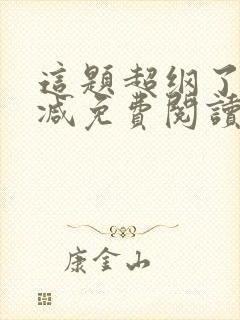 這題超纲了
減免費閱讀
康金山